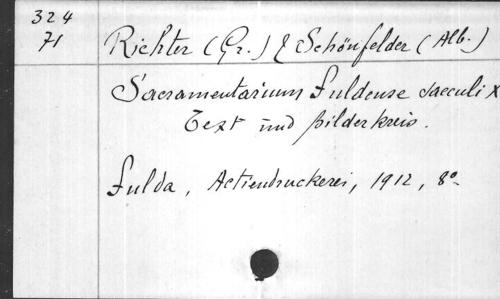 324
71
Richter (Gr.) & Schönfelder (Alb.)
Sacramentarium Fuldense saeculi X
Text und Bilderkreis.
Fulda, Actiendruckerei, 1912, 8°